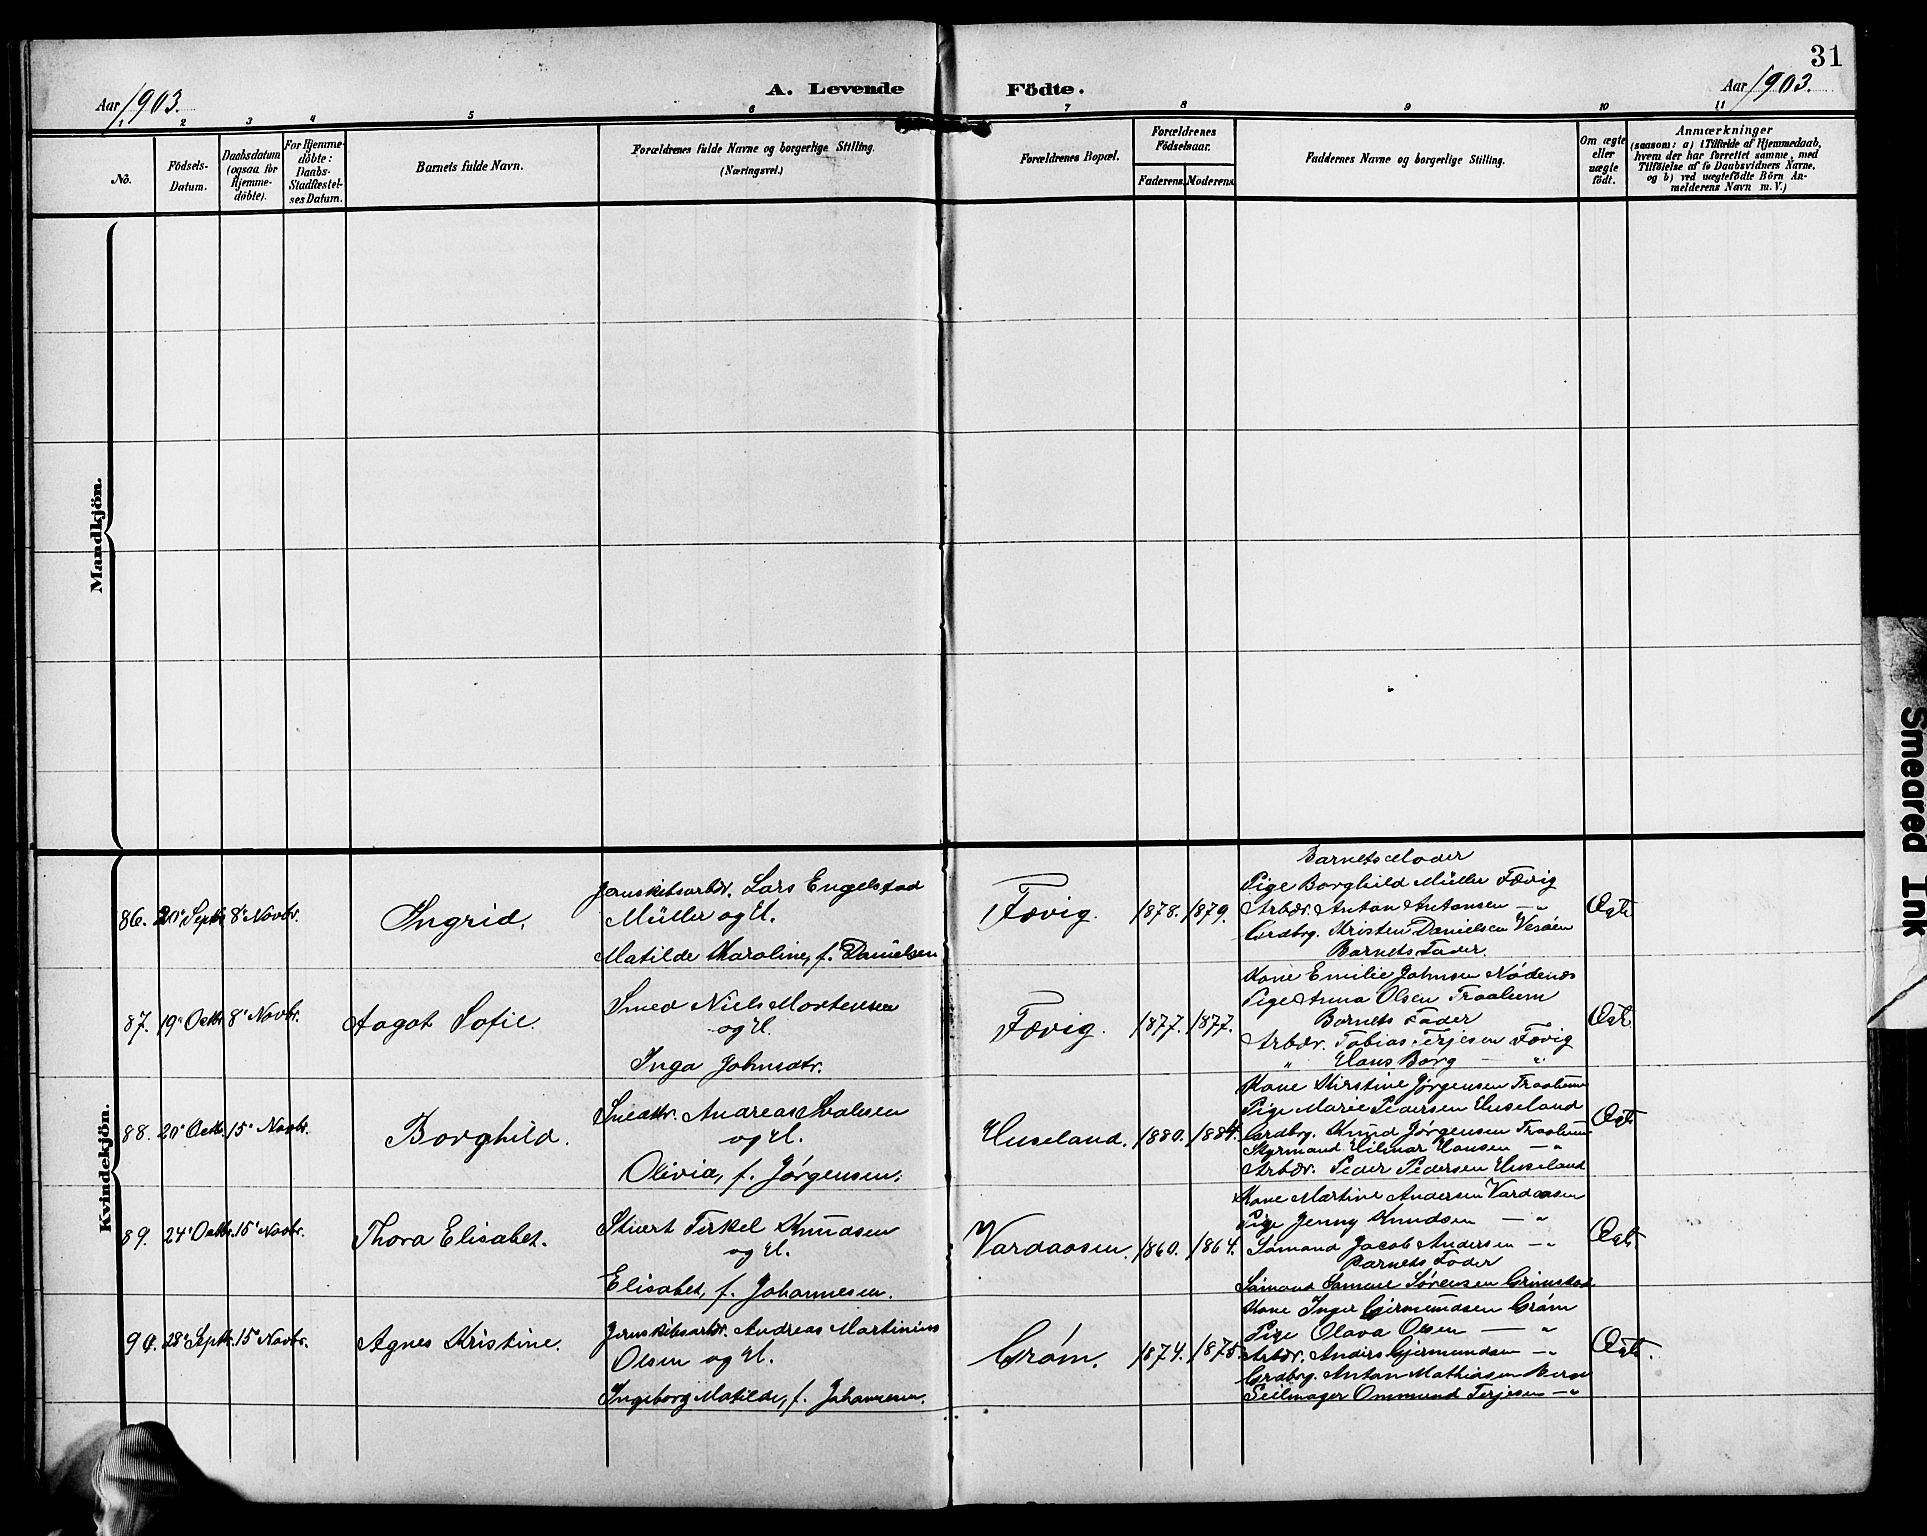 31
Aar 1903.
A. Levende Födte.
Aar 1903.
1 2 3 4 5 6 7 8 9 10 11
No.
Födsels-Datum.
Daabsdatum (ogsaa for Hjemme-döbte).
For Hjemme-döbte: Daabs-Stadfæstel-ses Datum.
Barnets fulde Navn.
Forældrenes fulde Navne og borgerlige Stilling.
(Næringsvei.)
Forældrenes Bopæl.
Forældrenes Födselsaar.
Faderens. Moderens.
Faddernes Navne og borgerlige Stilling.
Om ægte eller uægte födt.
Anmærkninger
(saasom: a) i Tilfælde af Hjemmedaab,
hvem der har forrettet samme, med
Tilföielse af to Daabsvidners Navne,
og b) ved uægtefödte Börn An-
melderens Navn m. V.)
Mandkjön.
Kvindekjön.
86. 20' Septbr. 8' Novbr. Ingrid.
Jernskibsarbdr. Lars Engelstad
Müller og H.
Matilde Karoline, f. Danielsen
Fævig. 1878. 1879.
Barnets Moder
Pige Borghild Müller Fævig
Arbdr. Anton Antonsen —"
Grdbrg. Kristen Danielsen Vesøen
Barnets Fader.
Ægte
87. 19' Octbr. 8' Novbr. Aagot Sofie.
Smed Niels Mortensen
og H.
Inga Johnsdtr.
Fævig. 1877. 1877.
Kone Emilie Johnsen Nødenes
Pige Anna Olsen Traalum
Barnets Fader
Arbdr. Tobias Terjesen Fævig
" Hans Borg — "
Ægte
88. 20' Octbr. 15' Novbr. Borghild.
Andreas
og H.
Olivia, f. Jørgensen.
Huseland. 1880. 1884.
Kone Kirstine Jørgensen Traalum
Pige Marie Pedersen Huseland
Gardbrg. Knud Jørgensen Traalum
Styrmand Hilmar Hansen —"
Arbdr. Peder Pedersen Huseland
Ægte
89. 24' Octbr. 15' Novbr. Thora Elisabet.
Stuert Terkel Knudsen
og H.
Elisabet, f. Johannesen.
Vardaasen. 1860. 1864.
Kone Martine Andersen Vardaasen
Pige Jenny Knudsen —"
Sømand Jacob Andersen —"
Barnets Fader
Sømand Samuel Sørensen Grimstad
Ægte
90. 28' Septbr. 15' Novbr. Agnes Kristine.
Jernskibsarbdr. Andreas Martinius
Olsen og H.
Ingeborg Matilde, f. Johannesen.
Grøm. 1874. 1875.
Kone Inger Gjermundsen Grøm
Pige Olava Olsen —"
Arbdr. Anders Gjermundsen —"
Grdbrg. Anton Mathiasen Berge
Seilmager Ommund Terjesen —"
Ægte.
Smeared Ink